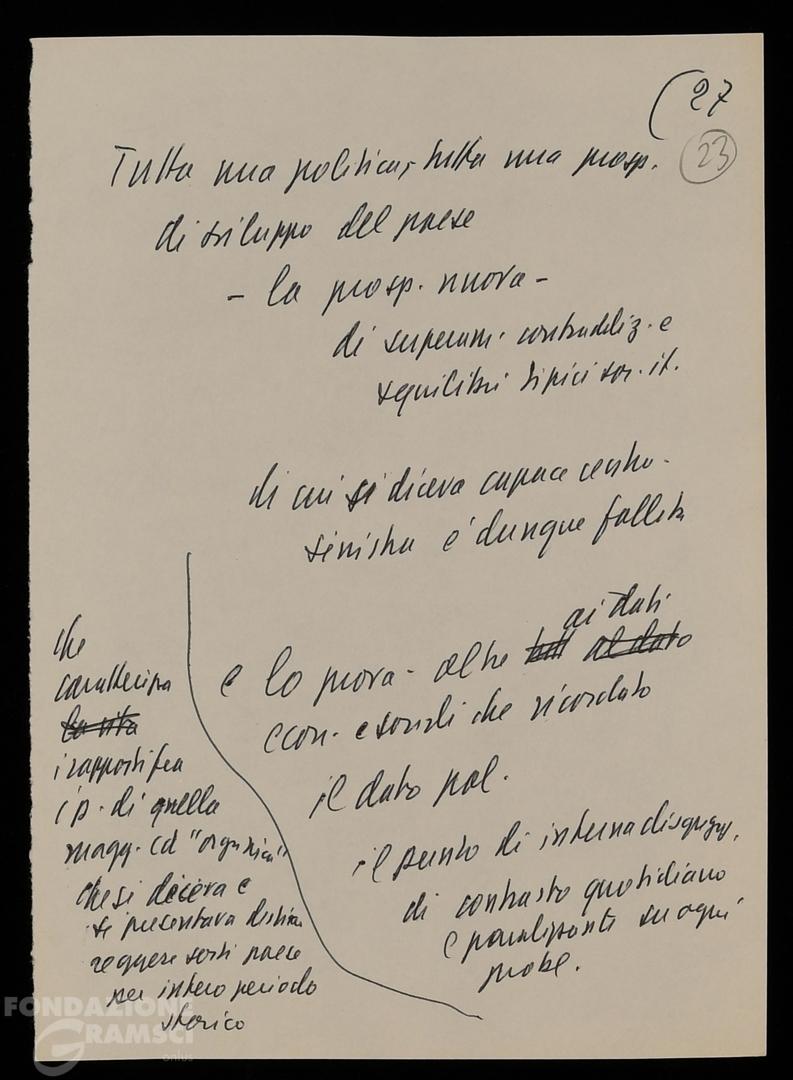 (27
23
Tutta una politica, tutta una prosp.
di sviluppo del paese
- la prosp. nuova -
di superam. contraddiz. e
squilibri tipici soc. it.
di cui si diceva capace centro-
sinistra è dunque fallita
ai dati
e lo prova - oltre al dato
econ. e sociali che ricordato
il dato pol.
il punto di interna disgregaz.
di contrasto quotidiano
e paralizzante su ogni
probl.
che
caratterizza
la vita
i rapporti fra
i p. di quella
magg. cd "organica"
che si diceva e
si presentava destin.
reggere sorti paese
per intero periodo
storico
FONDAZIONE
GRAMSCI
onlus